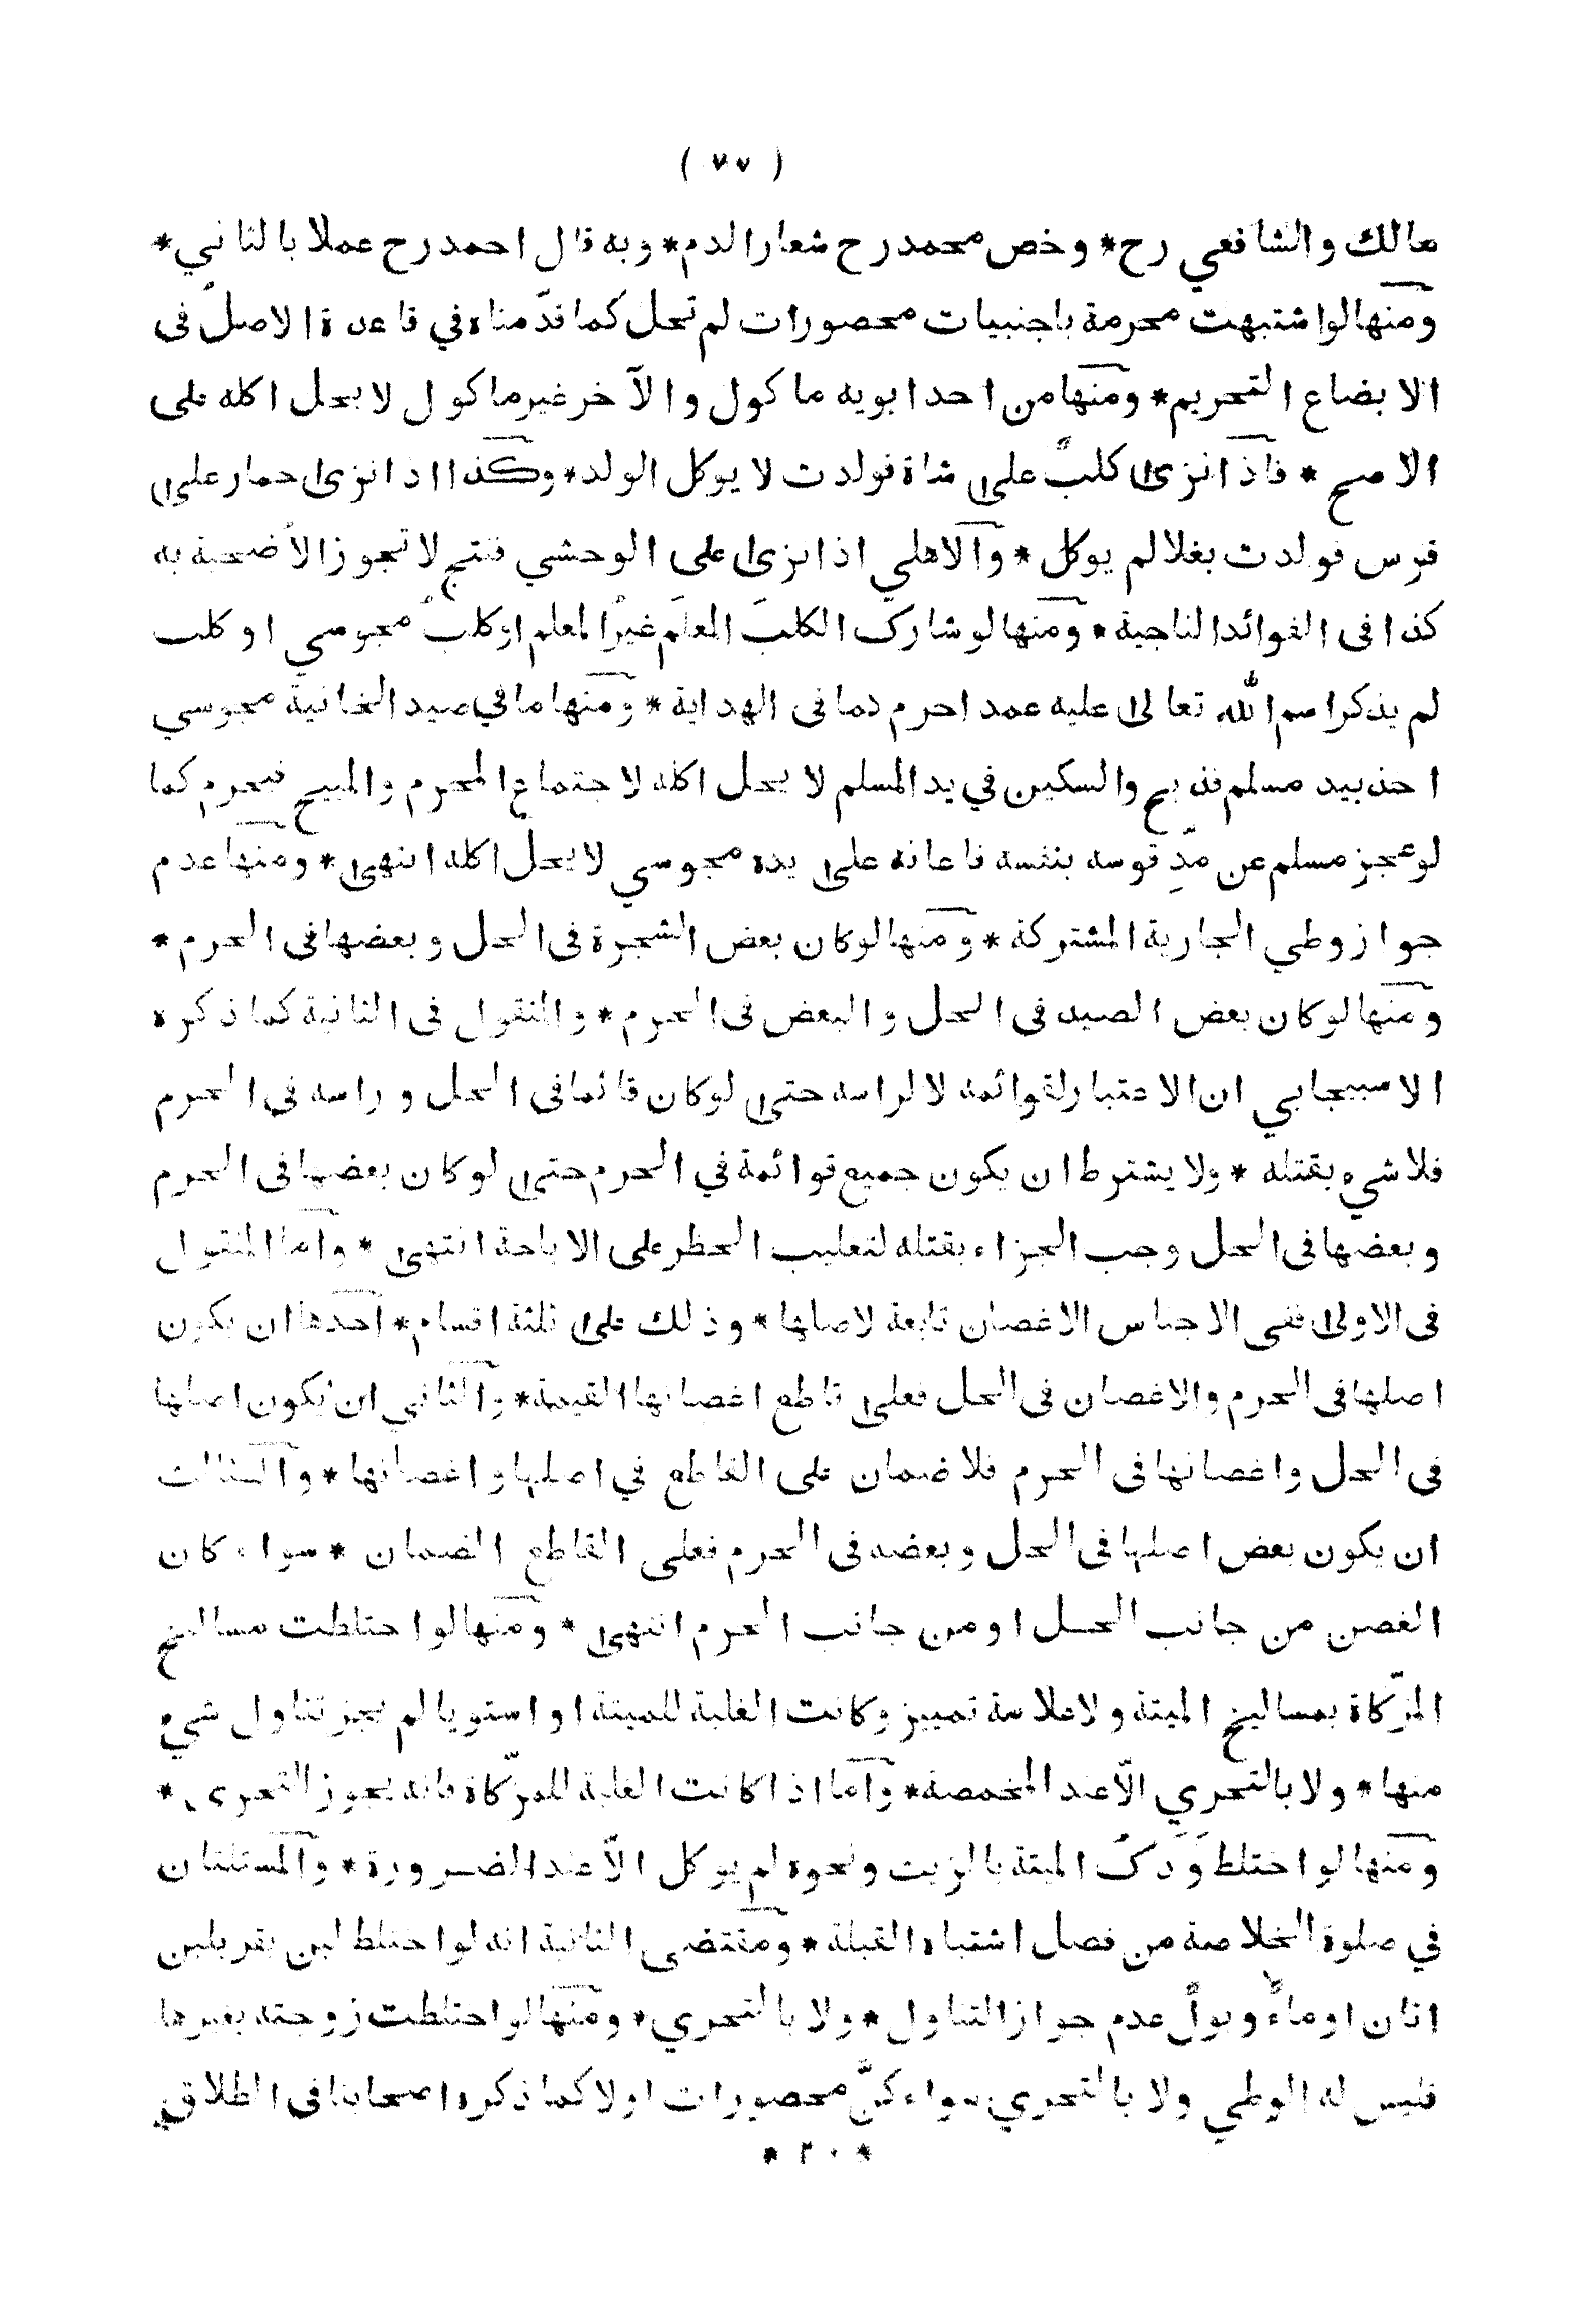 ( ٧٧ )
مالك والشافعي رح* وخص محمد رح شعار الدم* وبه قال احمد رح عملا بالثاني*
ومنها لو اشتبهت محرمة باجنبيات محصورات لم تحل كما قدّمناه في قاعدة الاصل فى
الابضاع التحريم* ومنها من احد ابويه ماكول والآخر غير ماكول لا يحل اكله على
الاصح * فاذا نزى كلبٌ على شاة فولدت لا يوكل الولد* وكذا اذا نزى حمار على
فرس فولدت بغلا لم يوكل * والاهلي اذا نزى على الوحشي فنتج لا تجوز الاضحية به
كذا فى الفوائد التاجية* ومنها لو شارك الكلبَ المعلّم غيرُ المعلم او كلبُ مجوسي او كلب
لم يذكر اسم الله تعالى عليه عمدا حرم كما فى الهداية * ومنها ما في صيد الخانية مجوسي
اخذ بيد مسلم فذبح والسكين في يد المسلم لا يحل اكله لاجتماع المحرم والمبيح فيحرم كما
لو عجز مسلم عن مدِّ قوسه بنفسه فاعانه على يده مجوسي لا يحل اكله انتهى* ومنها عدم
جواز وطي الجارية المشتركة* ومنها لو كان بعض الشجرة فى الحل وبعضها فى الحرم *
ومنها لو كان بعض الصيد فى الحل والبعض فى الحرم * والمنقول فى الثانية كما ذكره
الاسبيجابي ان الاعتبار لقوائمه لا لراسه حتى لو كان قائما فى الحل وراسه فى الحرم
فلا شيء بقتله * ولا يشترط ان يكون جميع قوائمة في الحرم حتى لو كان بعضها فى الحرم
وبعضها فى الحل وجب الجزاء بقتله لتغليب الحظر على الاباحة انتهى * واما المنقول
فى الاولى ففى الاجناس الاغصان تابعة لاصلها * وذلك على ثلثة اقسام* احدها ان يكون
اصلها فى الحرم والاغصان فى الحل فعلى قاطع اغصانها القيمة* والثاني ان يكون اصلها
فى الحل واغصانها فى الحرم فلا ضمان على القاطع في اصلها واغصانها * والثالث
ان يكون بعض اصلها فى الحل وبعضه فى الحرم فعلى القاطع الضمان * سواء كان
الغصن من جانب الحل او من جانب الحرم انتهى * ومنها لو اختلطت مساليخ
المزكّاة بمساليخ الميتة ولا علامة تمييز وكانت الغلبة للميتة او استويا لم يجز تناول شيء
منها* ولا بالتحري الّا عند المخمصة* واما اذا كانت الغلبة للمزكّاة فانه يجوز التحرى *
ومنها لو اختلط وَدَكُ الميتة بالزيت ونحوه لم يوكل الّا عند الضرورة * والمسئلتان
في صلوة الخلاصة من فصل اشتباه القبلة * ومقتضى الثانية انه لو اختلط لبن بقر بلبن
اتان او ماءٌ وبولٌ عدم جواز التناول * ولا بالتحري* ومنها لو اختلطت زوجته بغيرها
فليس له الوطي ولا بالتحري سواء كنّ محصورات اولا كما ذكره اصحابنا فى الطلاق
* ٢٠ *